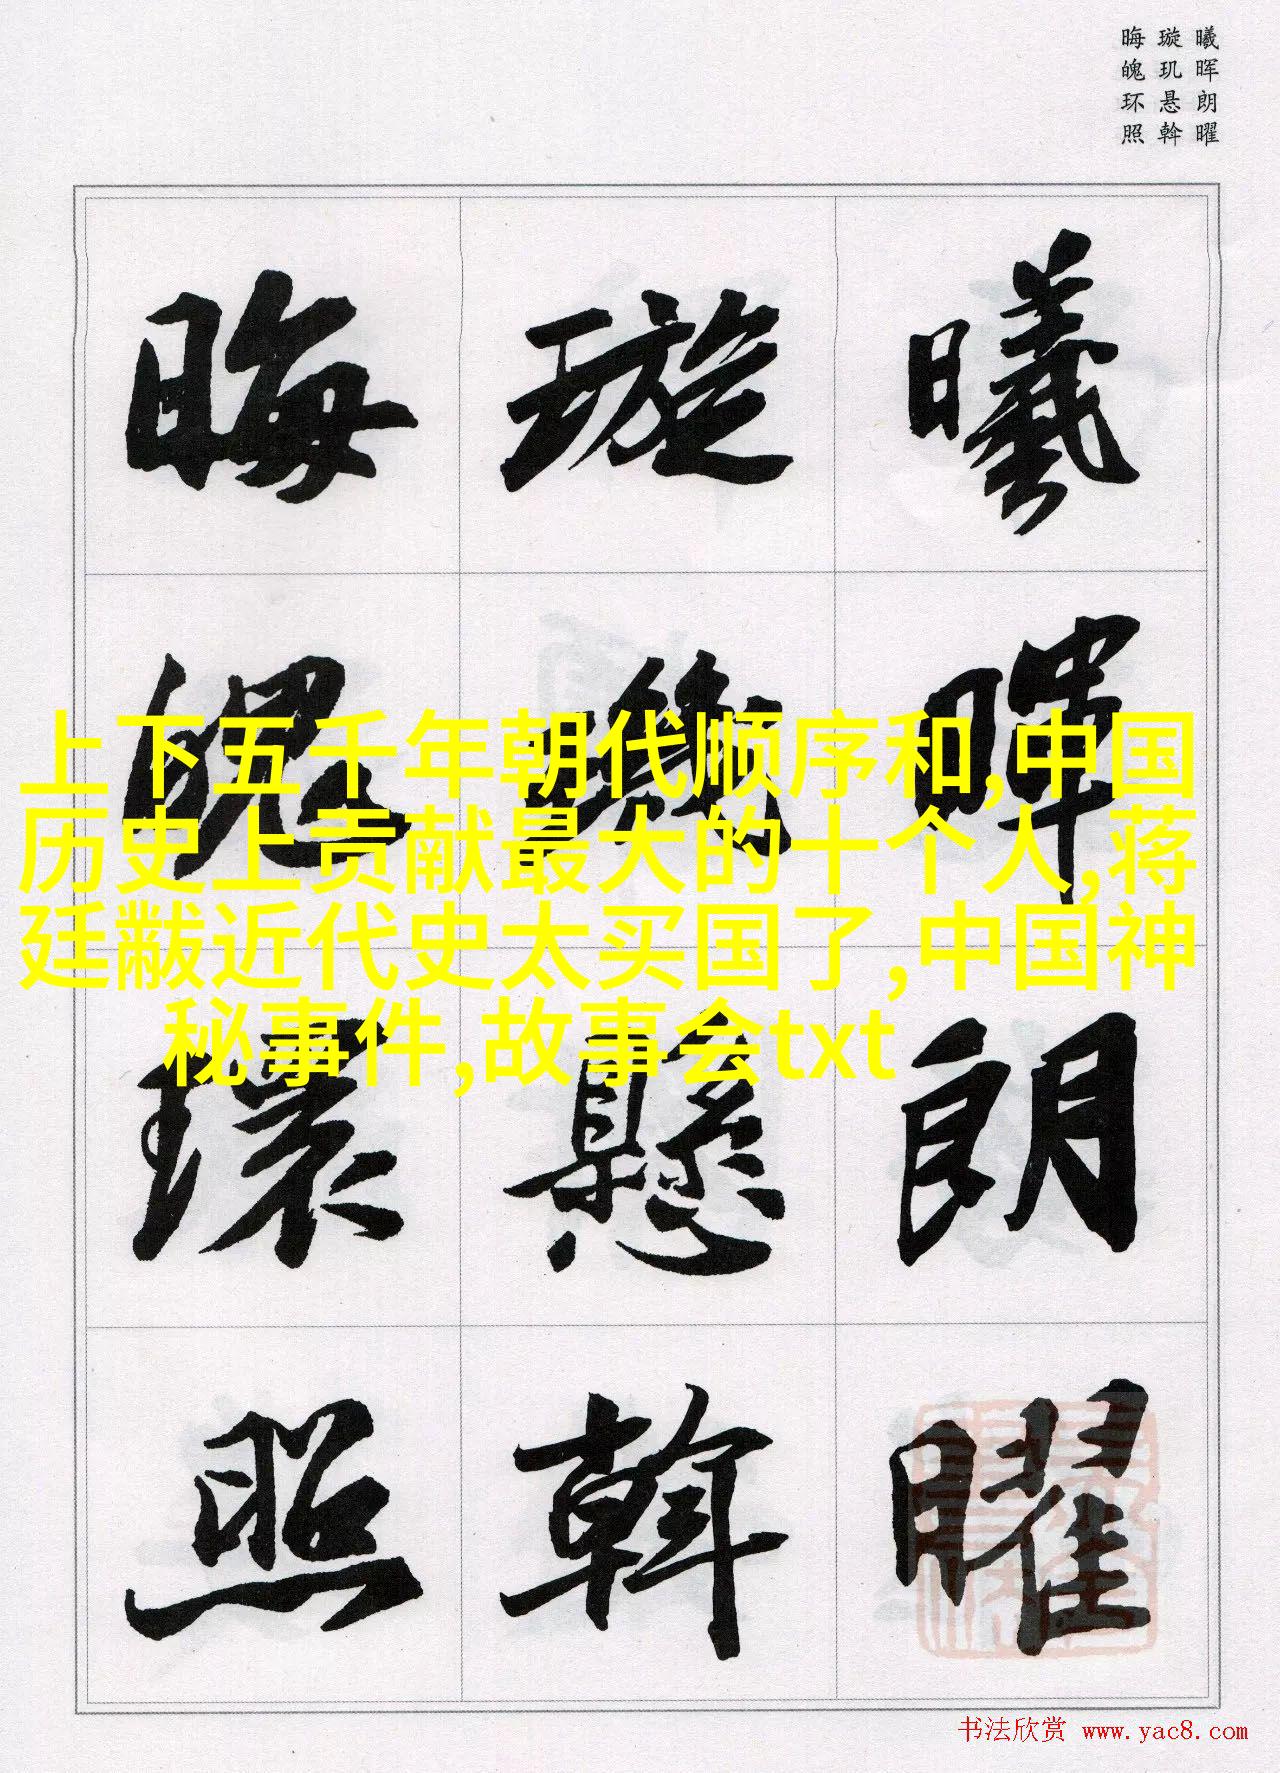 曦晖朗曜
璇玑悬斡
晦魄环照
曦暉朗曜
璇璣懸斡
晦魄環照
上下五千年朝代顺序和,中国
历史上贡献最大的十个人,蒋
廷黻近代史太买国了,中国神
秘事件,故事会txt
书法欣赏 www.yac8.com